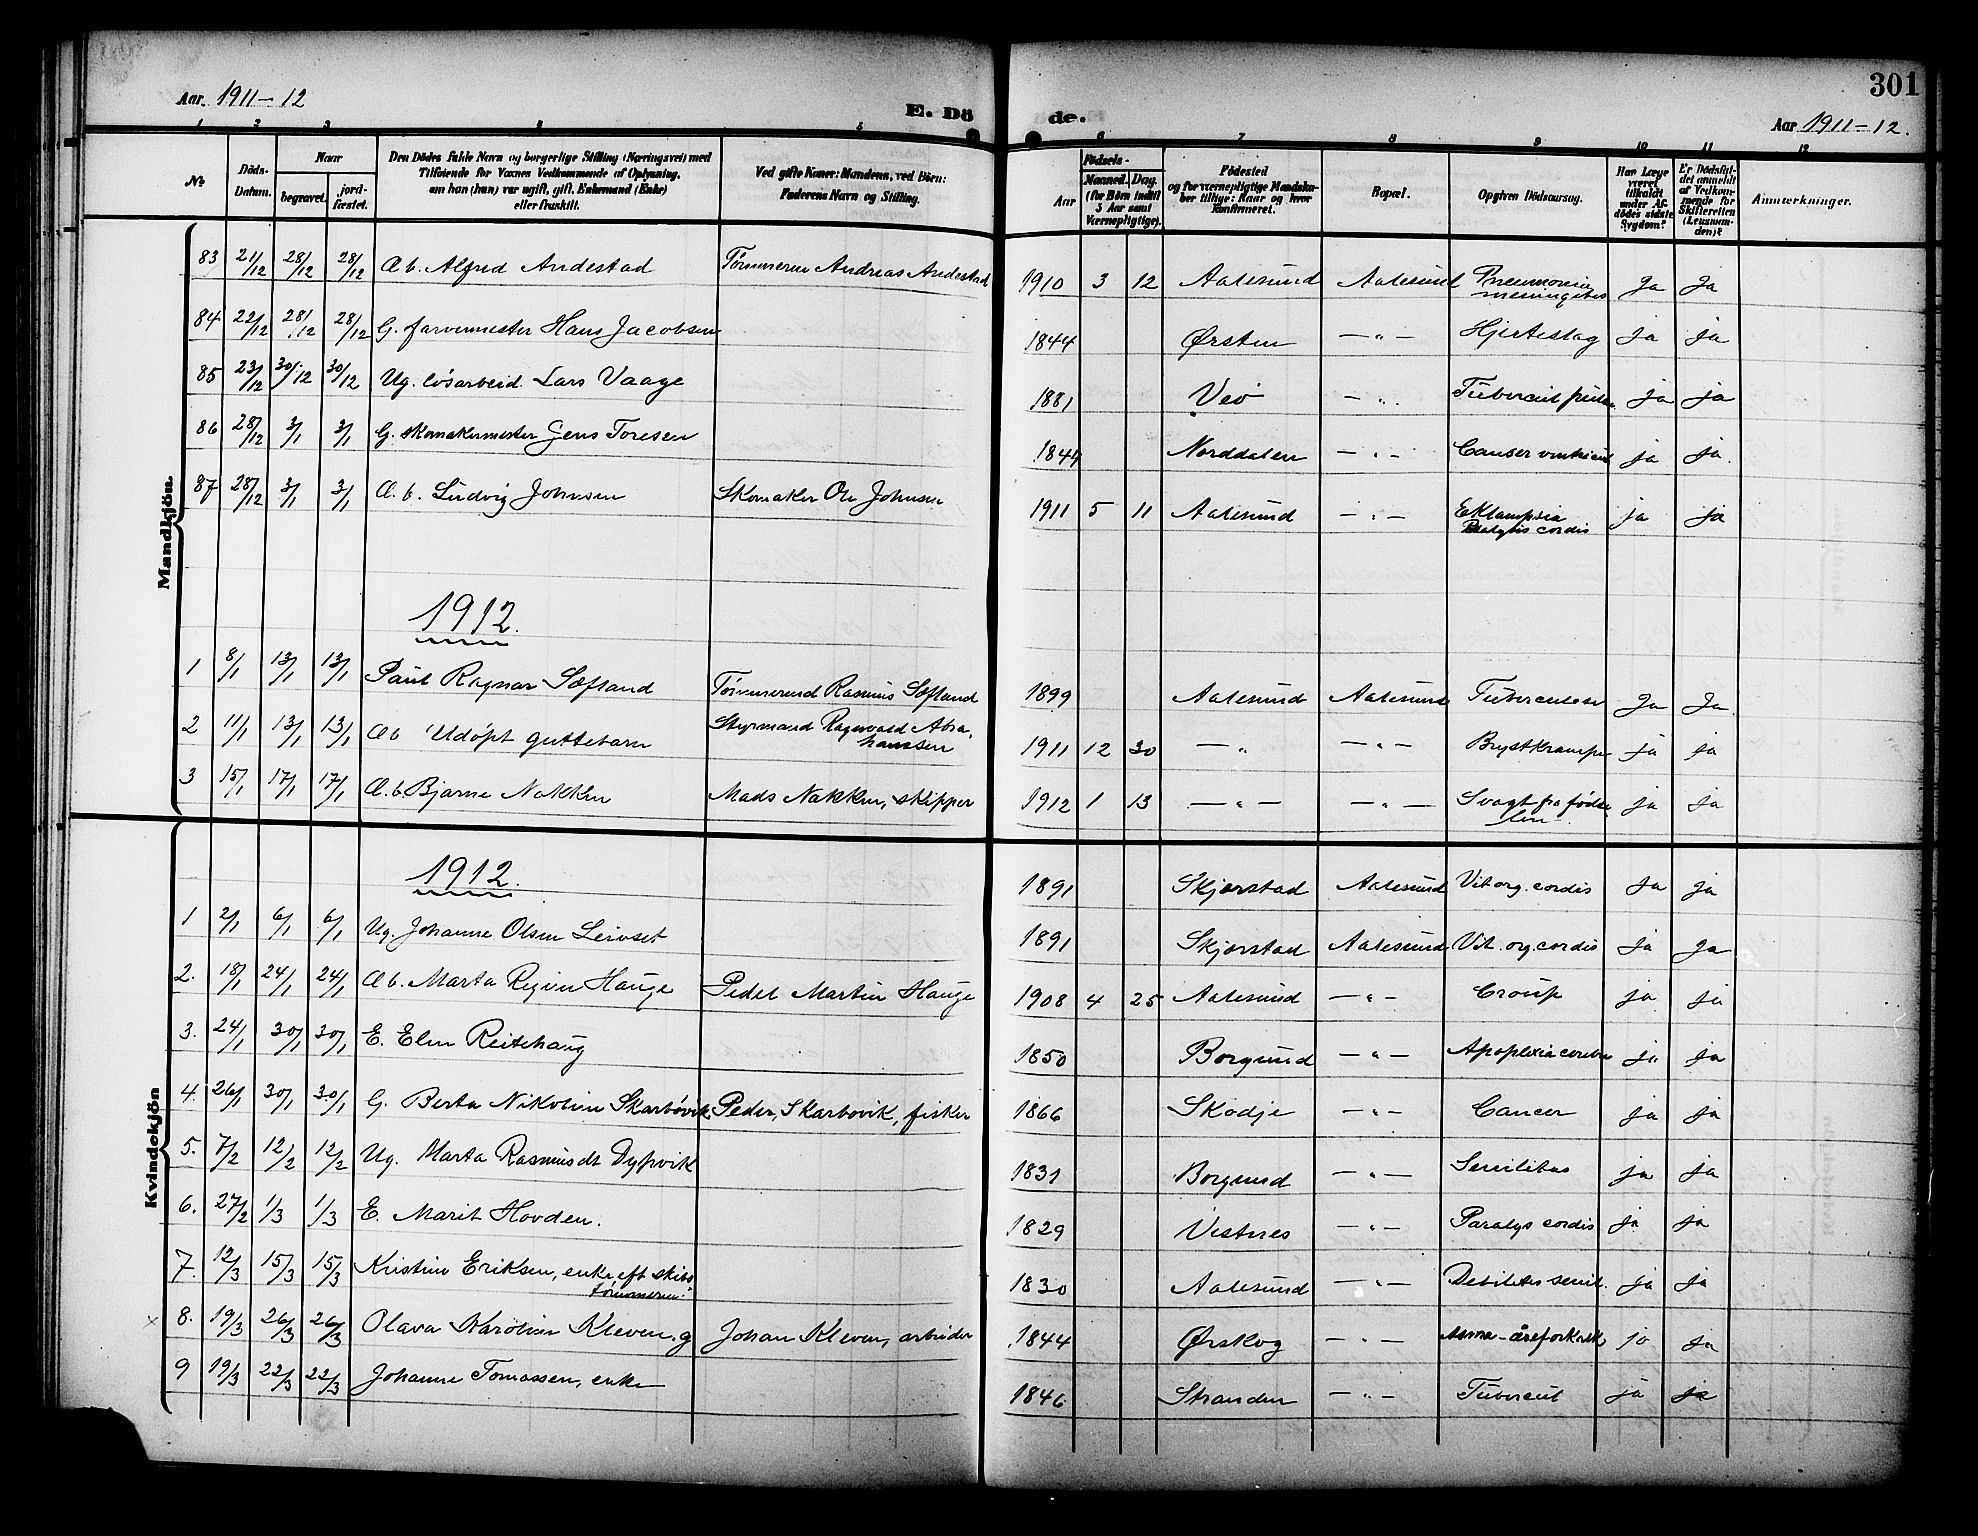 301
Aar. 1911-12
E. Dö
de.
Aar 1911-12.
1 2 3 4 5 6 7 8 9 10 11 12
№
Döds-Datum.
Naar
begravet.
jord-fæstet.
Den Dödes fulde Navn og borgerlige Stilling (Næringsvei) med
Tilföiende for Voxnes Vedkommende af Oplysning,
om han (hun) var ugift, gift, Enkemand (Enke)
eller fraskilt.
Ved gifte Koner: Mandens, ved Börn:
Faderens Navn og Stilling.
Födsels-
Aar
Maaned. Dag.
(for Börn indtil
5 Aar samt
Værnepligtige).
Födested
og for værnepligtige Mandska-
ber tillige: Naar og hvor
Konfirmeret.
Bopæl.
Opgiven Dödsaarsag.
Har Læge
været
tilkaldt
under Af-
dödes sidste
Sygdom?
Er Dödsfal-
det anmeldt
af Vedkom-
mende for
Skifteretten
(Lensman-
den)?
Anmærkninger.
Mandkjön
83 21/12 28/12 28/12 Æ b. Alfred Andestad Tömmerm Andreas Andestad 1910 3 12 Aalesund Aalesund Pneumonia meningitis Ja Ja
84 22/12 28/12 28/12 G. farvermester Hans Jacobsen 1844 Ørsten — " — Hjerteslag ja ja
85 23/12 30/12 30/12 Ug. løsarbeid. Lars Vaage 1881 Veø — " Tubercul pulm. ja ja
86 28/12 3/1 3/1 G. skomakermester Jens Toresen 1844 Norddalen — " — Cancer ventricul ja ja.
87 28/12 3/1 3/1 Æ. b. Ludvig Johnsen Skomaker Ole Johnsen 1911 5 11 Aalesund — " — Eklampsia
Paralysis cordis ja ja
1912.
1 8/1 13/1 13/1 Paul Ragnar Sæfland Tömmermd Rasmus Sæfland 1899 Aalesund Aalesund Tuberculose Ja Ja.
2 11/1 13/1 13/1 Æb Udøpt guttebarn Styrmand Ragnvald Abra-
hamssen 1911 12 30 — " — " — Brystkrampe ja ja
3 15/1 17/1 17/1 Æ. b. Bjarne Nakken Mads Nakken, skipper 1912 1 13 — " — — " — Svagt fra fødse-
len ja ja
Kvindekjön
1912.
1891 Skjerstad Aalesund Vit org. cordis Ja ja
1 2/1 6/1 6/1 Ug. Johanne Olsen Leivset 1891 Skjerstad Aalesund Vit. org. cordis Ja Ja
2. 18/1 24/1 24/1 Æ b. Marta Regine Hauge Pedel Martin Hauge 1908 4 25 Aalesund — " — Croup ja ja
3. 24/1 30/1 30/1 E. Elen Reitehaug 1850 Borgund — " — Apoplexia cerebri ja ja
4. 26/1 30/1 30/1 G. Berta Nikoline Skarbövik Peder Skarbovik, fisker 1866 Skodje — " — Cancer ja ja
5. 7/2 12/2 12/2 Ug. Marta Rasmusdt Dypvik 1831 Borgund — " — Senilitas ja ja
6. 27/2 1/3 1/3 E. Marit Hovden. 1829 Vestnes — " — Paralys cordis ja ja
7. 12/3 15/3 15/3 Kristine Eriksen, enke eft skibs-
tømmerm. 1830 Aalesund — " — Debilitas senil. ja ja
8. 19/3 26/3 26/3 Olava Karoline Kleven. g Johan Kleven, arbeider 1844 Ørskog — " — Asma-åreforkalk ja ja
9 19/3 22/3 22/3 Johanne Tomassen, enke 1846 Stranden — " — Tubercul ja ja